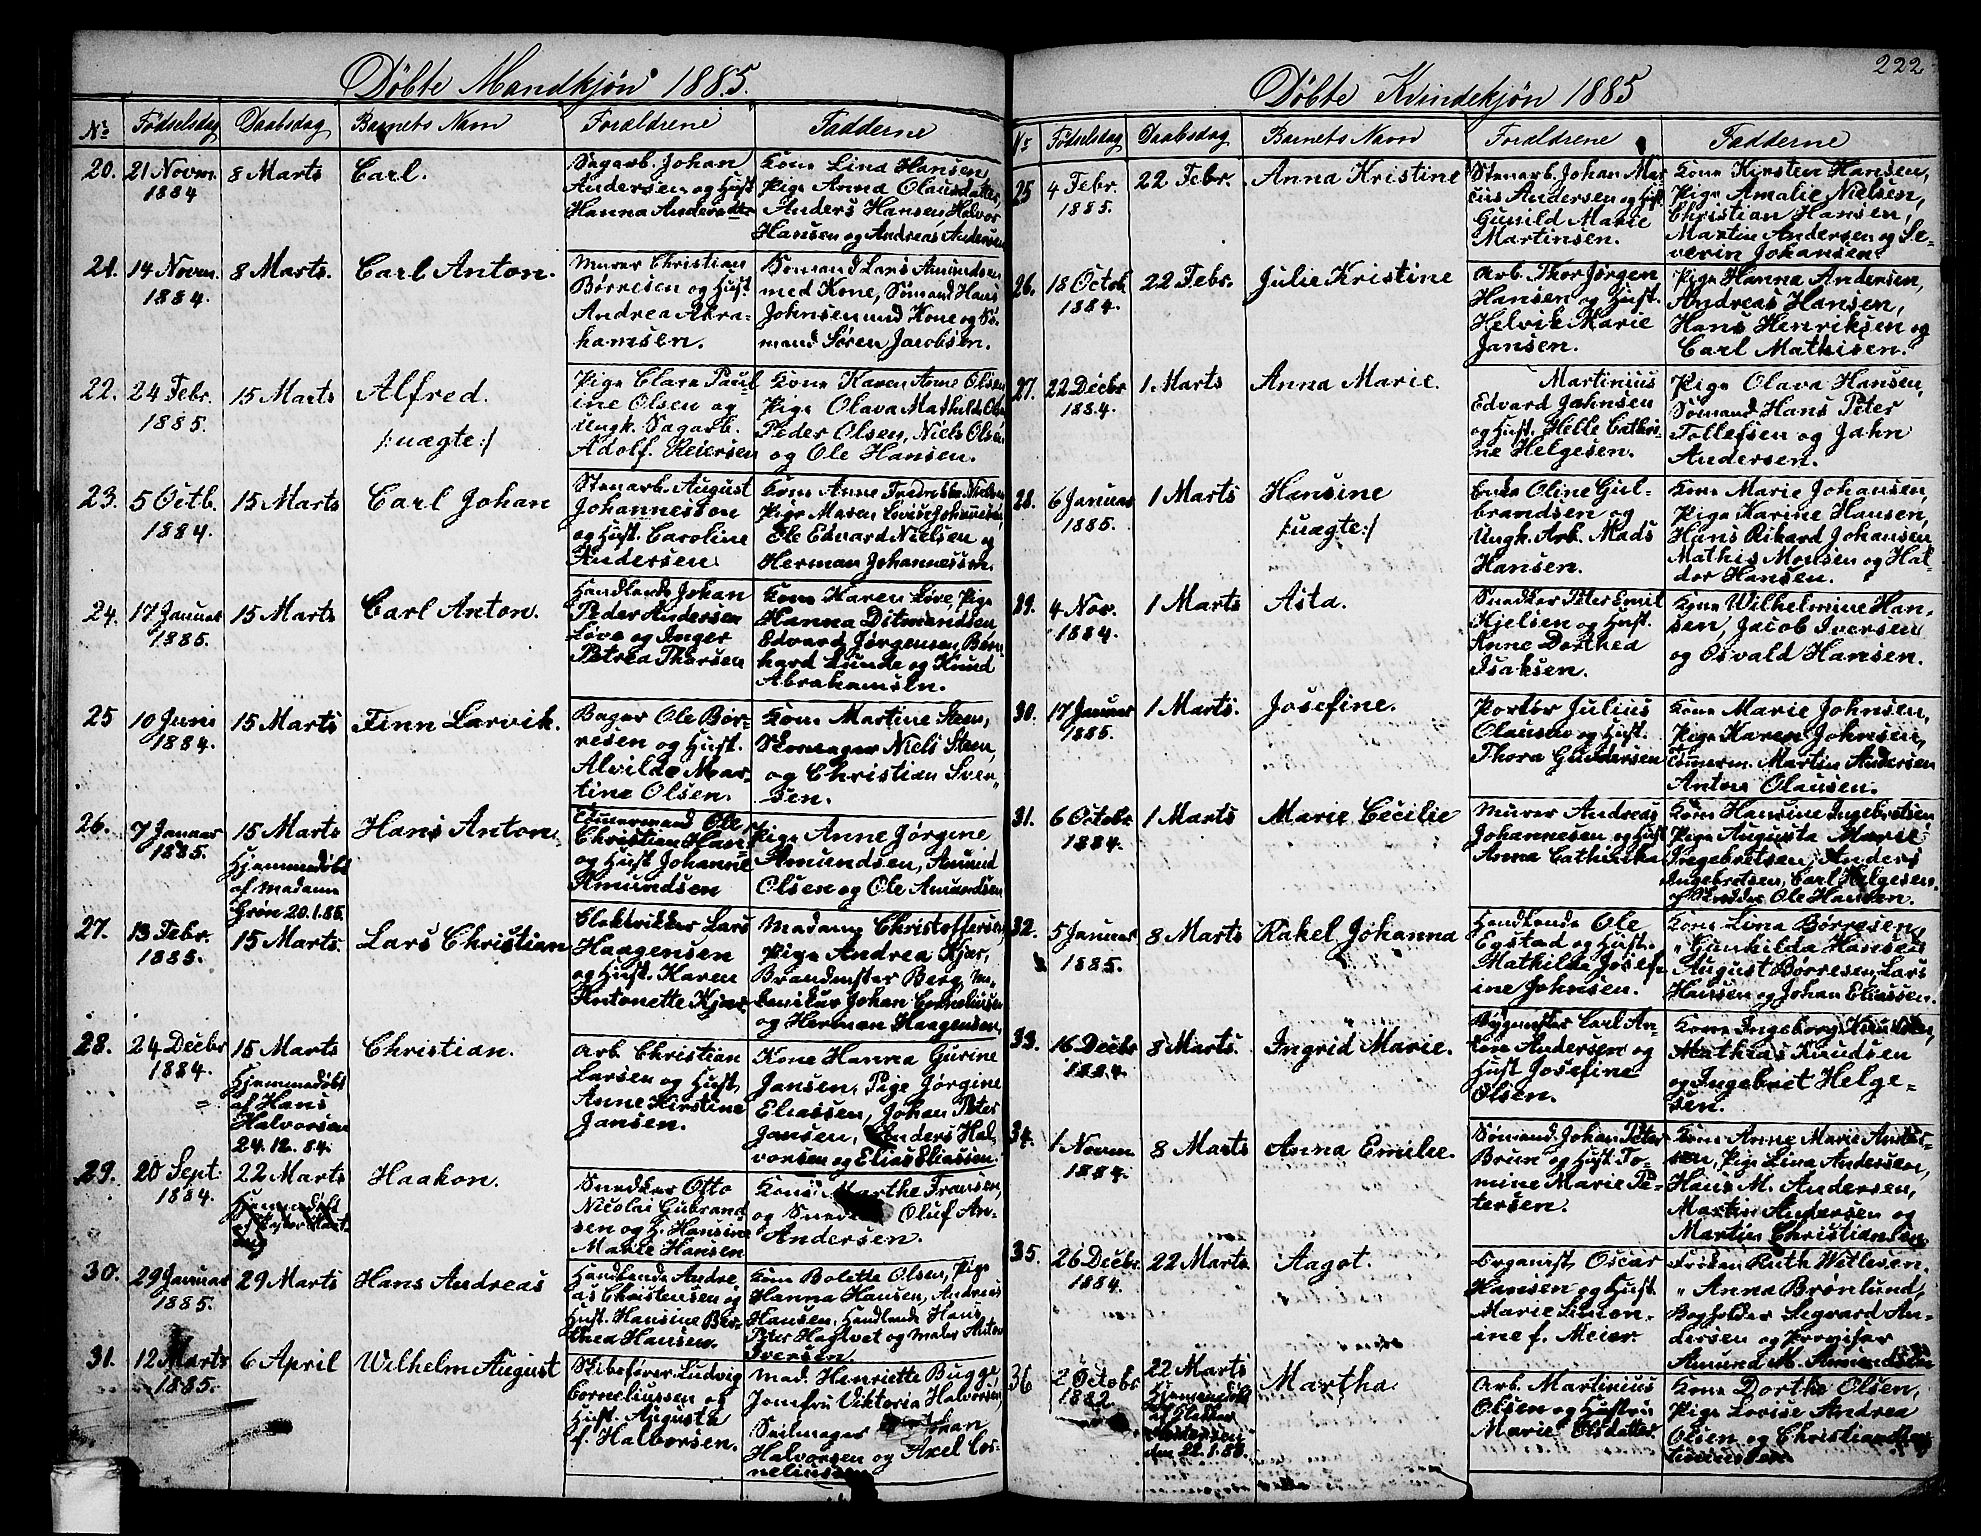 Döbte Mandkjön 1885.
No Födselsdag Daabsdag Barnets Navn Forældrene Fadderne
20. 21 Novm. 1884 8 Marts Carl.
Sagarb. Johan
Andersen og Hust.
Hanna Andersdtr
Kone Lina Hansen,
Pige Anna Olausdatter,
Anders Hansen, Halvor
Hansen og Andreas Andersen
21. 14 Novm. 1884. 8 Marts. Carl Anton.
Murer Christian
Børresen og Hust.
Andrea Abra-
hamsen.
Sømand Lars Amundsen
med Kone, Sømand Hans
Johnsen med Kone og Sø-
mand Søren Jacobsen.
22. 24 Febr. 1885. 15 Marts Alfred.
/:uægte:/
Pige Clara Paul
ine Olsen og
Ungk. Sagarb.
Adolf Reiersen
Kone Karen Anne Olsen
Pige Olava Mathilde Olsen
Peder Olsen, Niels Olsen
og Ole Hansen.
23. 5 Octb. 1884. 15 Marts Carl Johan
Stenarb. August
Johannessen
og Hust. Caroline
Andersen
Kone Anne Fredrikke Nielsen
Pige Maren Lovise Johannesen,
Ole Edvard Nielsen og
Herman Johannessen.
24. 17 Januar 1885. 15 Marts Carl Anton.
Handlende Johan
Peder Andersen
Løve og Inger
Petrea Thorsen
Kone Karen Løve, Pige
Hanna Ditmandsen
Edvard Jørgensen, Bern-
hard Lunde og Knud
Abrahamsen.
25 10 Juni 1884. 15 Marts Finn Larvik.
Bager Ole Bør-
resen og Hust.
Alvilde Mar-
tine Olsen.
Kone Martine Steen,
Skomager Niels Steen,
og Christian Sven-
sen.
26. 7 Januar 1885. 15 Marts Hans Anton.
Hjemmedøbt
af Madame
Grøn 20.1.85.
Tømermand Ole
Christian Han-
og Hust Johanne
Amundsen
Pige Anne Jørgine
Amundsen, Amund
Olsen og Ole Amundsen
27. 13 Febr. 1885. 15 Marts. Lars Christian
Elektrikker Lars
Haagensen
og Hust. Karen
Antonette Kjær
Madame Christoffersen,
Pige Andrea Kjær,
Brandmester Berg, M-
kanikus Johan Corneliussen
og Herman Haagensen,
28. 24 Decbr 1884. 15 Marts Christian.
Hjemmedöbt
af Hans
Halvorsen
24.12.84.
Arb. Christian
Larsen og Hust,
Anne Kirstine
Jansen.
Kone Hanna Gurine
Jansen, Pige Jørgine
Eliassen, Johan Peter
Jansen, Anders Hal-
vorsen og Elias Eliassen.
29. 20 Sept. 1884. 22 Marts Haakon.
Snedker Otto
Nicolai Gubrand
sen og H. Hansine
Marie Hansen
Kone Marthe Fransen,
og Snedker Oluf An-
Andersen.
30. 29 Januar 1885. 29 Marts Hans Andreas
Handlende Andre
as Christensen og
Hust. Hansine Ber-
thea Hansen.
Kone Bolette Olsen, Pige
Hanna Hansen, Andreas
Hansen, Handlende Hans
Peter Hagtvet og Maler Anton
Iversen
31. 12 Marts 1885. 6 April Wilhelm August
Skibsfører Ludvig
Corneliussen og
Hust. Augusta
f. Halvorsen.
Mad. Henriette Bugge,
Jomfru Viktoria Halvorsen
Seilmager Johan
Halvorsen og Axel Cor-
neliussen
222
Döbte Kvindekjön 1885
No Födselsdag Daabsdag Barnets Navn Forældrene Fadderne
25 4 Febr. 1885. 22 Febr. Anna Kristine
Stenarb. Johan Mar-
cius Andersen og Hust.
Gunild Marie
Martinsen.
Kone Kirsten Hansen,
Pige Amalie Nielsen,
Christian Hansen,
Martin Andersen og Se-
verin Johansen.
26. 18 Octob. 1884. 22 Febr. Julie Kristine
Arb. Thor Jørgen
Hansen og Hust.
Helvik Marie
Jansen.
Pige Hanna Andersen,
Andreas Hansen,
Hans Henriksen og
Carl Mathisen.
27. 22 Decbr 1884. 1 Marts Anna Marie.
Martinius
Edvard Jahnsen
og Hust. Helle Cathri-
ne Helgesen.
Pige Olava Hansen,
Sømand Hans Peter
Tollefsen og Jahn
Andersen.
28. 6 Januar 1885. 1 Marts Hansine
/:uægte:/
Enke Oline Gul-
brandsen og
Ungk. Arb. Mads
Hansen.
Kone Marie Johansen,
Pige Karine Hansen,
Hans Rikard Johansen
Mathis Monsen og Hal-
dor Hansen.
29. 4 Nov. 1884. 1 Marts Asta.
Snedker Peter Emil
Kjelsen og Hust.
Anne Dorthea
Isaksen.
Kone Wilhelmine Han-
sen, Jacob Iversen
og Osvald Hansen.
30. 17 Januar 1885. 1 Marts. Josefine.
Portør Julius
Olausen og Hust.
Thora Gundersen
Kone Marie Johnsen,
Pige Karen Johnsen,
Tömerm. Martin Andersen
Anton Olausen.
31. 6 Octobr 1884. 1 Marts Marie Cecilie
Murer Andreas
Johannesen og Hust
Anna Cathinka
Kone Hansine Ingebretsen
Pige Augusta Marie
Ingebretsen, Anders
Ingebretsen, Carl Helgesen.
og Snedker Ole Hansen.
32. 5 Januar 1885. 8 Marts Rakel Johanna
Handlende Ole
Egstad og Hust.
Mathilde Josef-
ine Johnsen.
Kone Lina Børresen,
„ Gunhilda Hansen
August Børresen, Lars
Hansen og Johan Eliassen.
33. 16 Decbr 1884. 8 Marts. Ingrid Marie.
Bygmester Carl An-
ton Andersen og
Hust Josefine
Olsen.
Kone Ingeborg Knudsen,
Mathias Knudsen
og Ingebret Helge-
sen.
34. 1 Novem 1884. 8 Marts Anna Emilie.
Sømand Johan Peter
Brun og Hust To-
mine Marie Pe-
tersen.
Kone Anne Marie Ander-
sen, Pige Lina Andersen,
Hans M. Andersen,
Martin Andersen og
Martin Christiansen
35. 26 Decbr. 1884. 22 Marts. Aagot.
Organist Oscar
Hansen og Hust.
Marie Simon-
ine f. Meier.
Frøken Ruth Wetlesen.
„ Anna Brønlund,
Bogholder Segvard An-
dersen og Provisor
Amund M. Amundsen
36 2 Octobr 1882 22 Marts Martha.
Hjemmedöbt
den 22.1.83.
Arb. Martinius
Olsen og Hustru
Marie Olsdatter.
Kone Dorthe Olsen,
Pige Lovise Andrea
Olsen og Christian